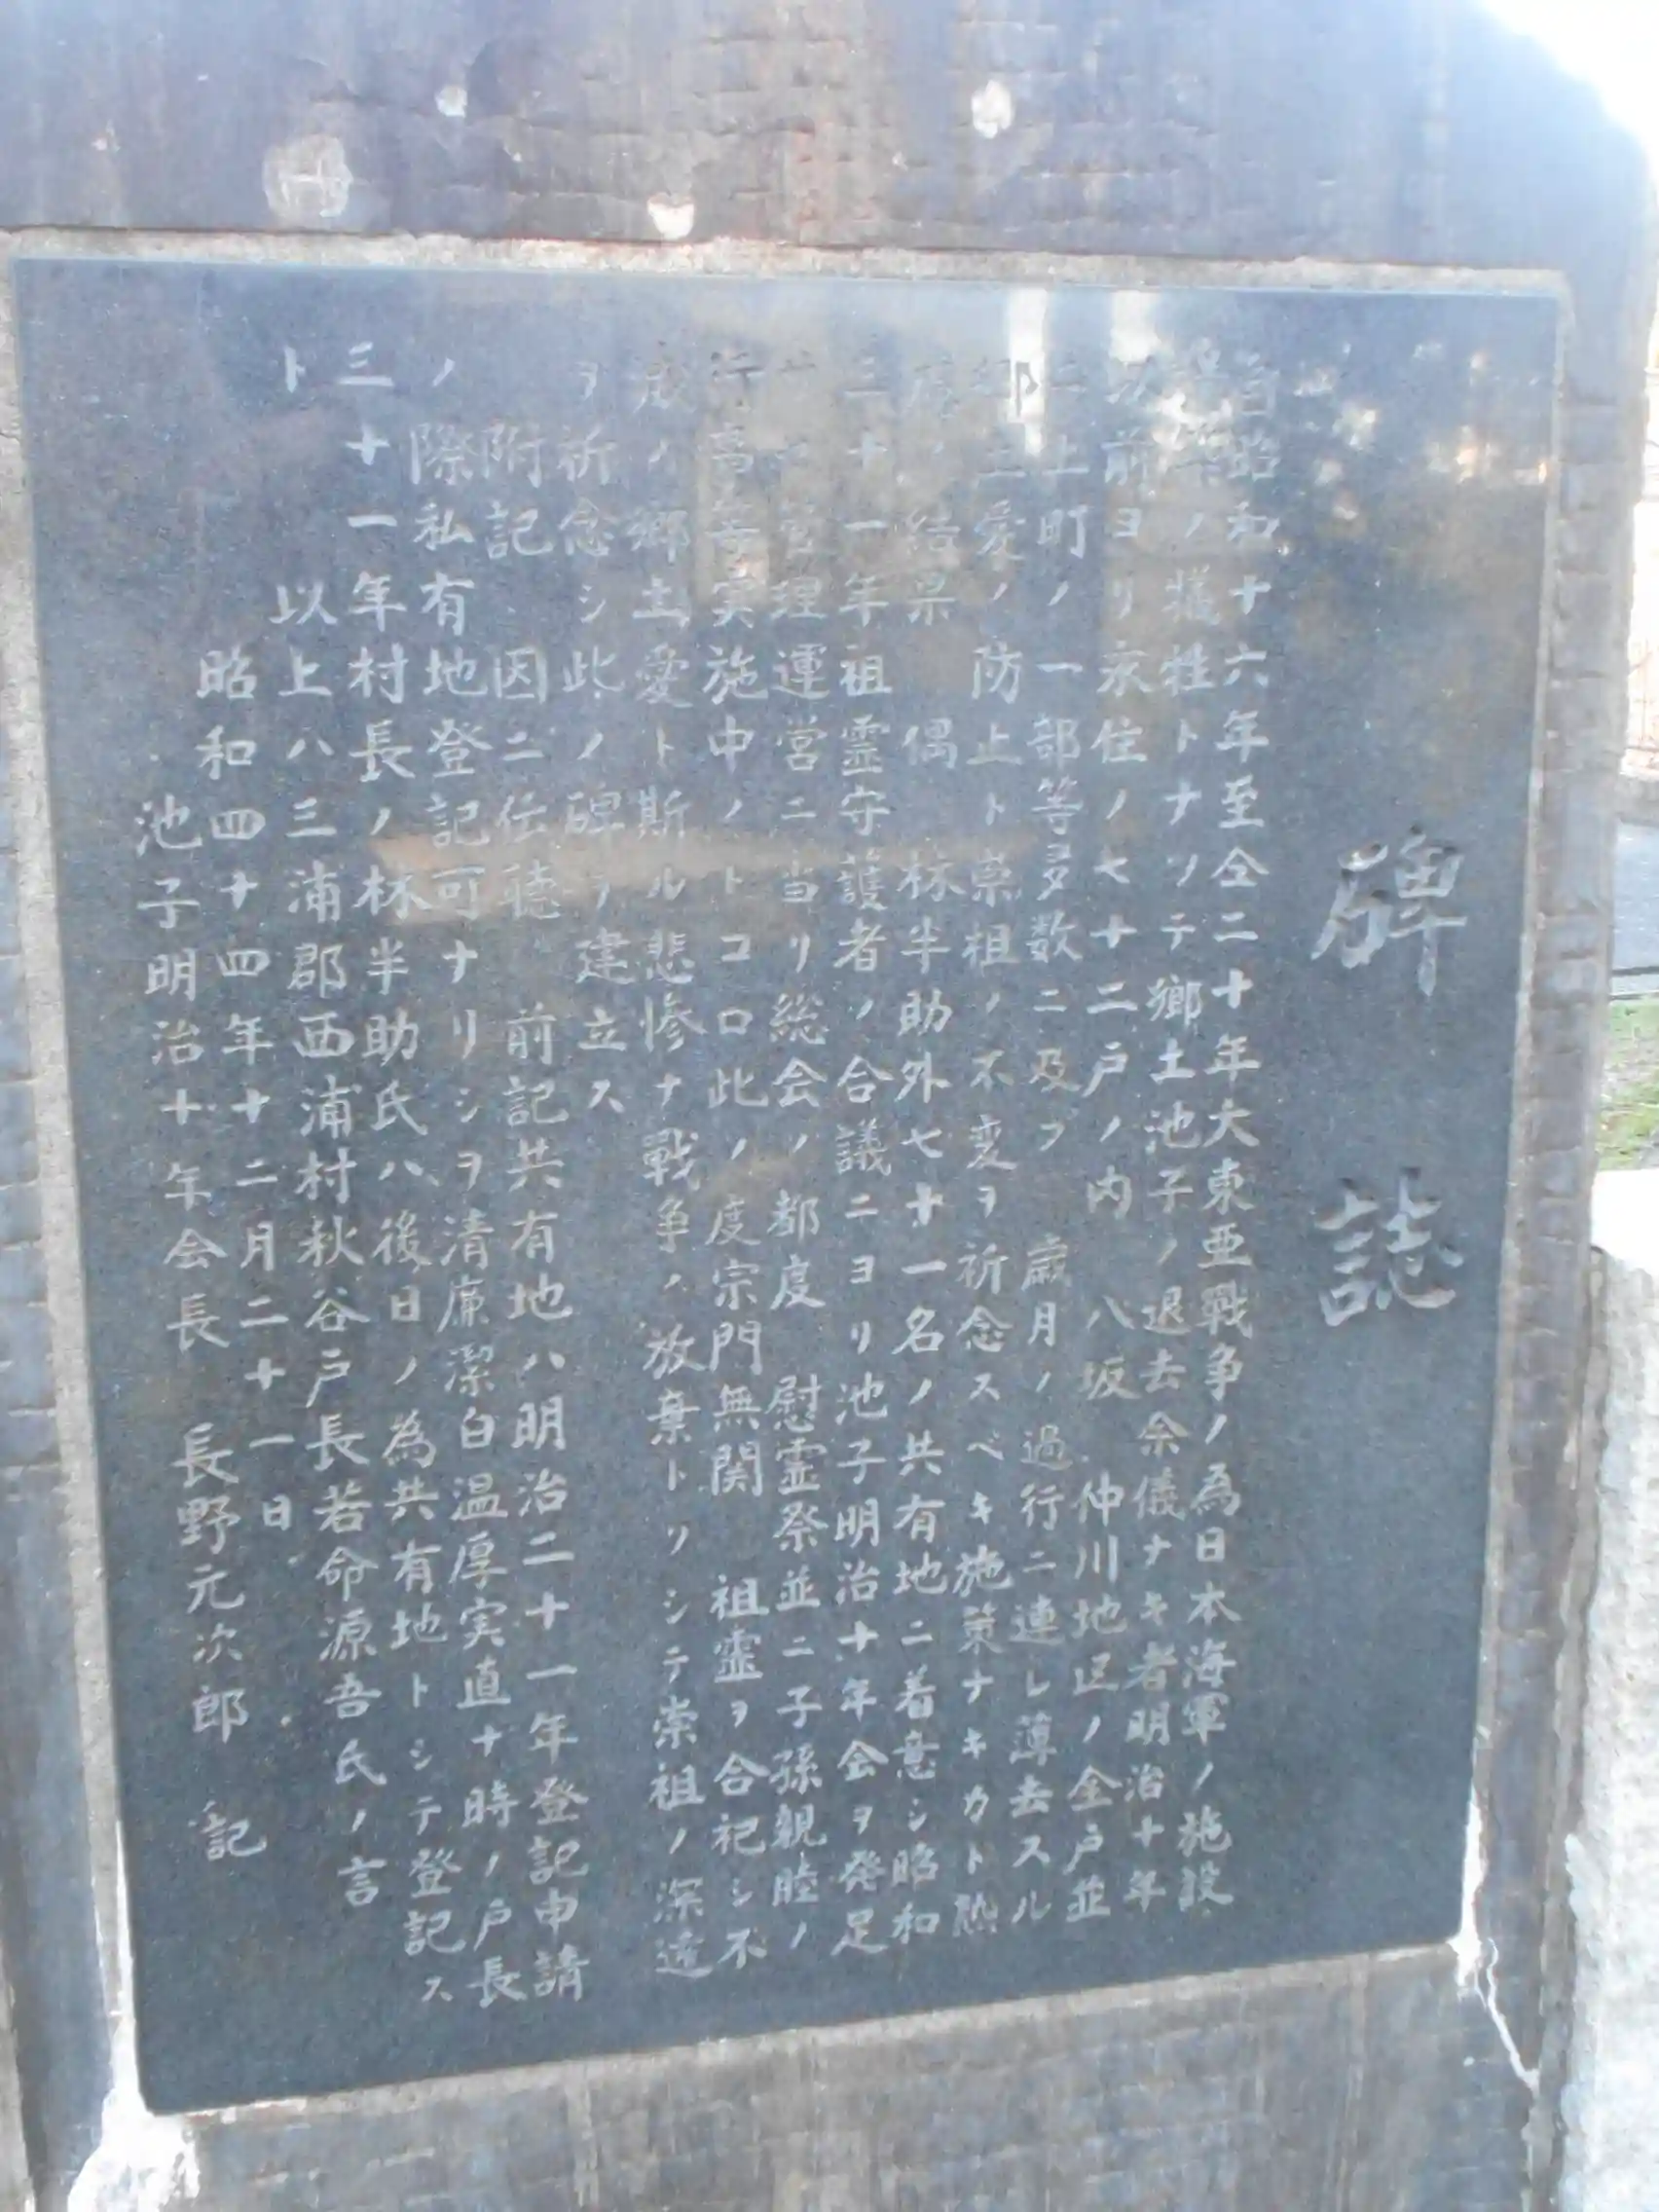 碑誌
自昭和十六年至仝二十年大東亜戰争ノ為日本海軍ノ施設
ノ犠牲トナツテ郷土池子ノ退去余儀ナキ者明治十年
以前ヨリ永住ノ七十二戸ノ内 八坂 仲川地区ノ全戸並
ニ上町ノ一部等ヨタ数ニ及ブ 歳月ノ過行ニ連レ薄去スル
郷土愛ノ防止ト崇祖ノ不変ヲ祈念スベキ施策ナキカト熟
慮ノ結果 偶 林半助外七十一名ノ共有地ニ着意シ昭和
三十一年祖霊守護者ノ合議ニヨリ池子明治十年会ヲ発足
管理運営ニ当リ総会ノ都度 慰霊祭並ニ子孫親睦ノ
行事等実施中ノトコロ此ノ度宗門無関 祖霊ヲ合祀シ不
ノ郷土愛ト斯ル悲惨ナ戰争ノ放棄トソシテ崇祖ノ深遠
ヲ祈念シ此ノ碑ヲ建立ス
附記 因ニ伝聴 前記共有地ハ明治二十一年登記申請
ノ際私有地登記可ナリシヲ清廉潔白温厚実直ナ時ノ戸長
三十一年村長ノ林半助氏ハ後日ノ為共有地トシテ登記ス
ト 以上ハ三浦郡西浦村秋谷戸長若命源吾氏ノ言
昭和四十四年十二月二十一日
池子明治十年会長 長野元次郎 記